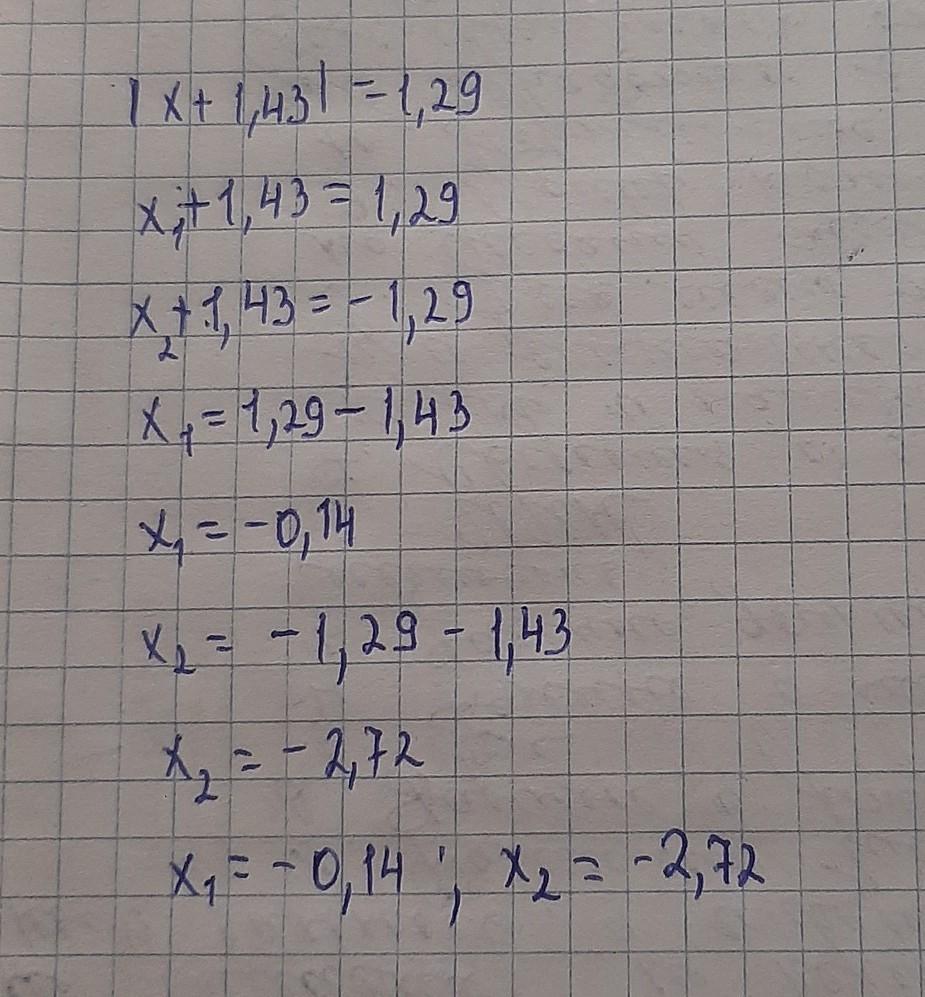 |x+1,43|=1,29
x₁+1,43=1,29
x₂+1,43=-1,29
x₁=1,29-1,43
x₁=-0,14
x₂= -1,29-1,43
x₂=-2,72
x₁=-0,14; x₂=-2,72